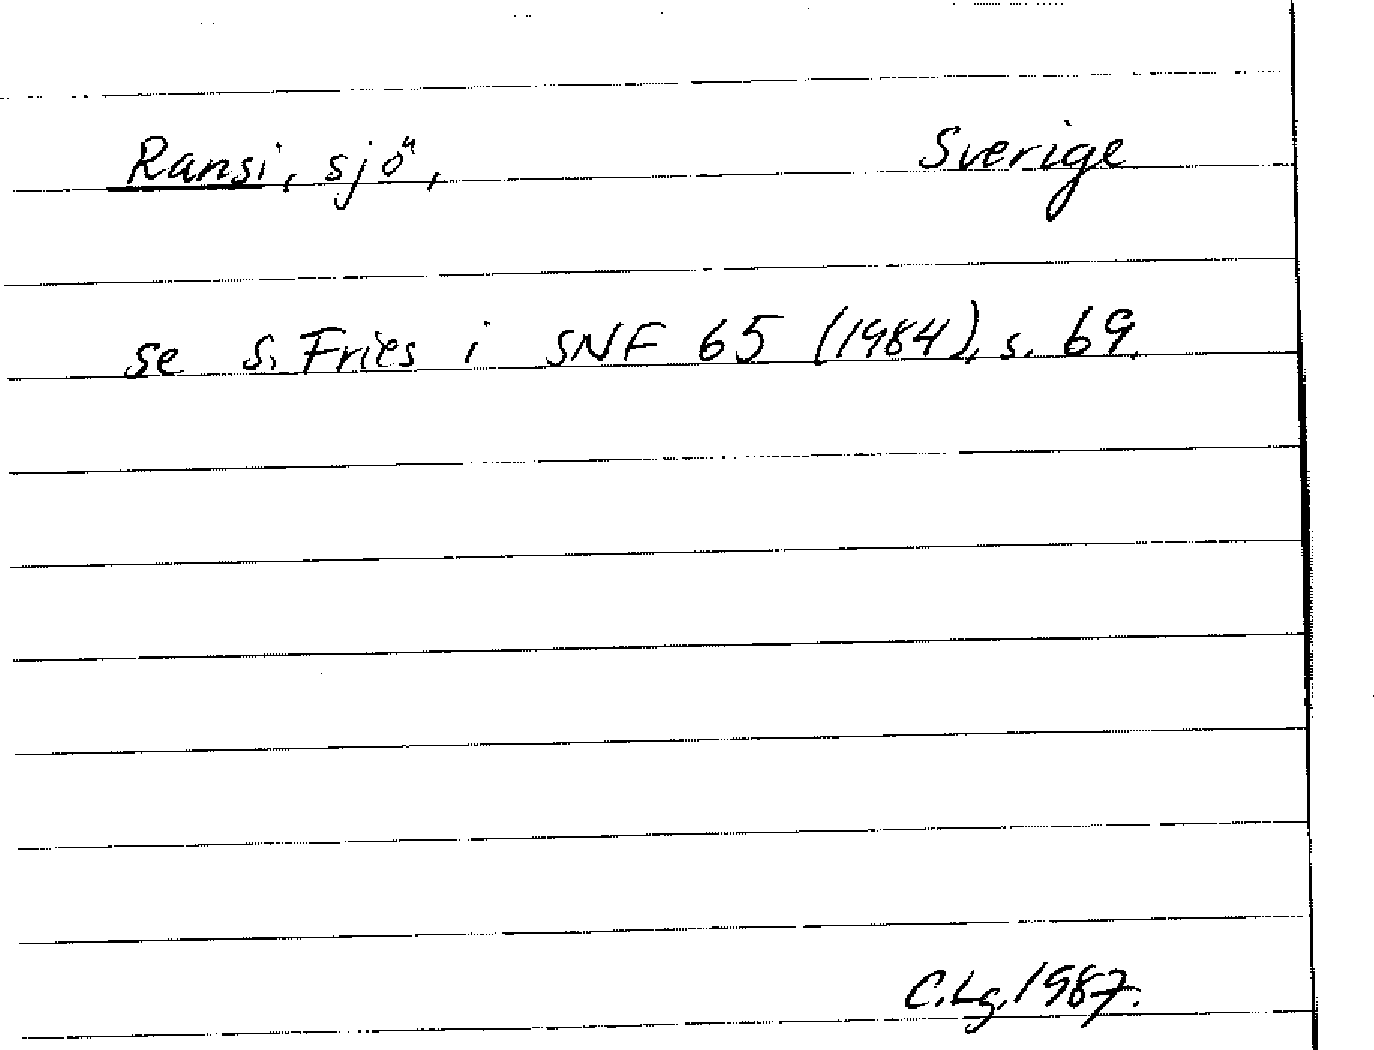 Ransi, sjö, Sverige
se S. Fries i SNF 65 (1984), s. 69.
C.Lg. 1987.